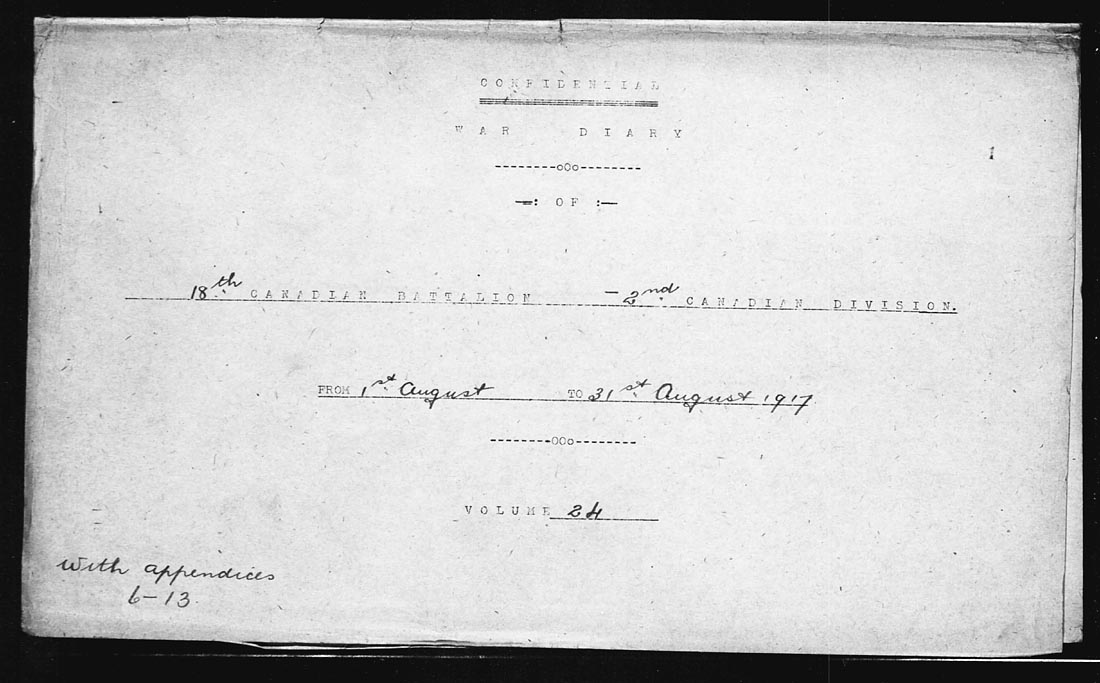 CONFIDENTIAL
WAR DIARY
1
--------oOo--------
—: OF :—
18th CANADIAN BATTALION — 2nd CANADIAN DIVISION.
FROM 1st August TO 31st August 1917
--------OOo--------
VOLUME 24
With appendices
6-13.